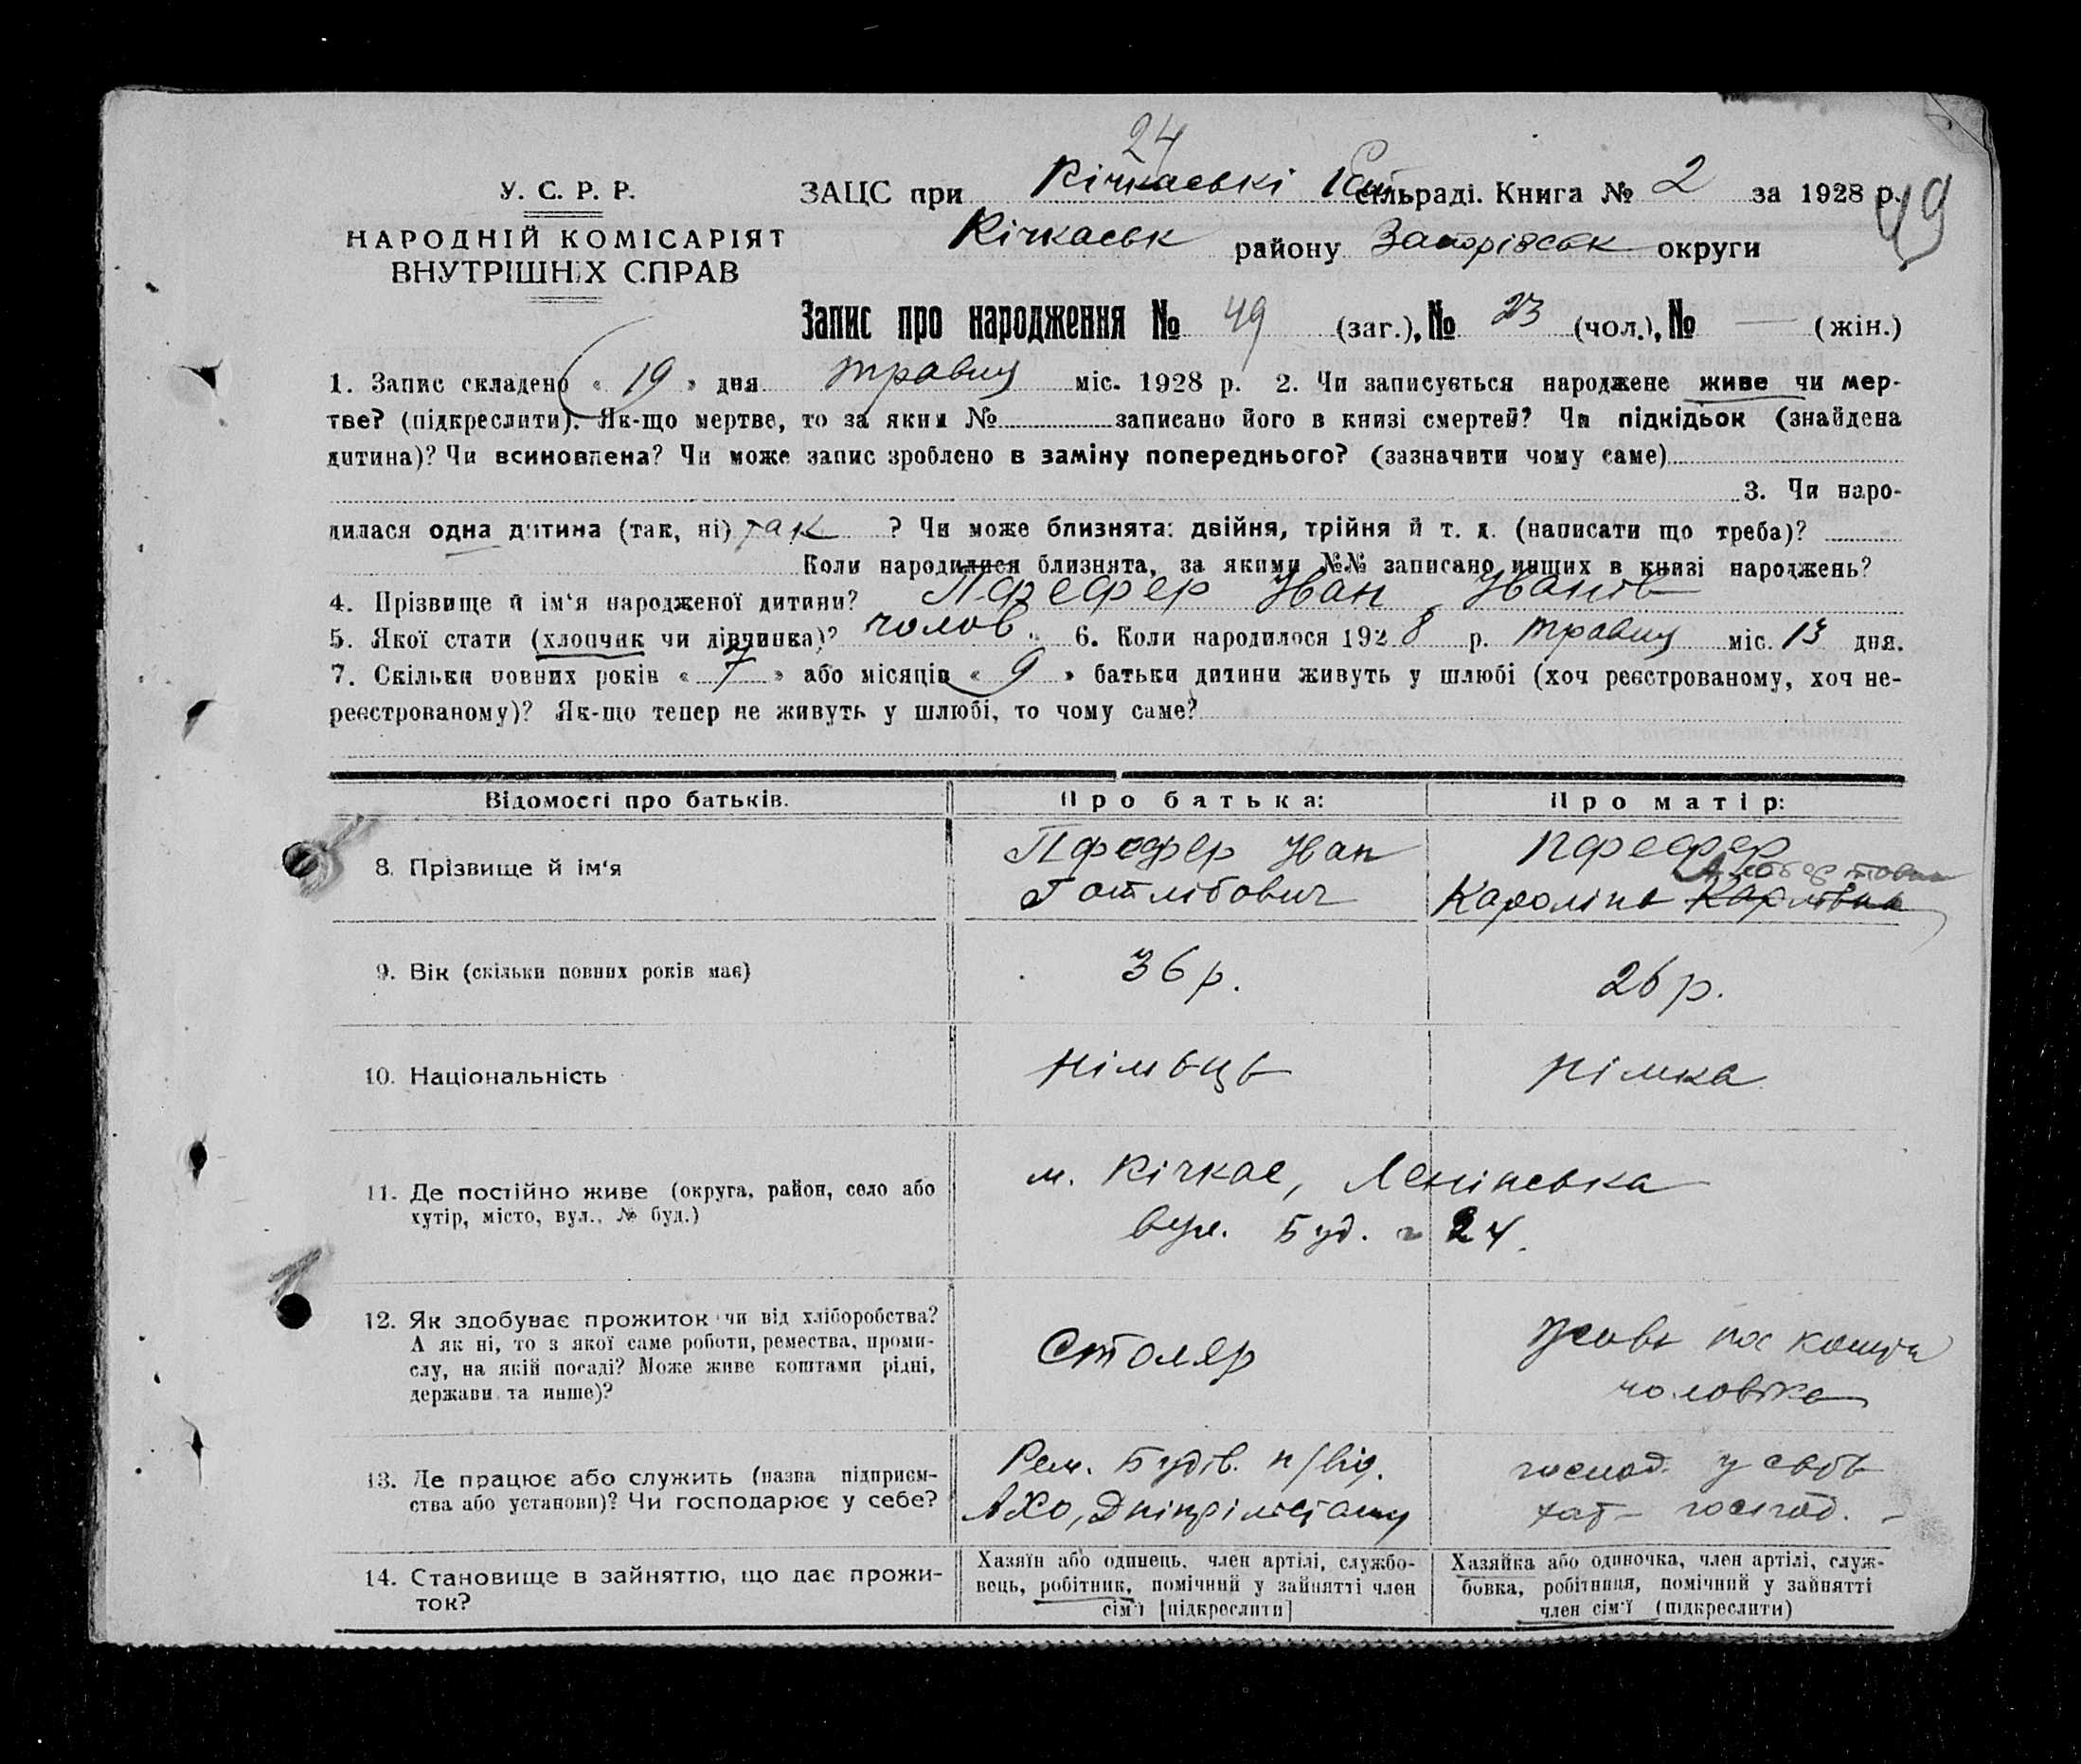 24
У. С. Р. Р.
ЗАЦС при Кічкаські сільраді. Книга № 2 за 1928 р.
49
НАРОДНІЙ КОМІСАРІЯТ
ВНУТРІШНІХ СПРАВ
Кічкаськ району Запорізськ округи
Запис про народження № 49 (заг.), № 23 (чол.), № — (жін.)
1. Запис складено « 19 » дня травня міс. 1928 р. 2. Чи записується народжене живе чи мер-
тве? (підкреслити). Як-що мертве, то за яким № записано його в книзі смертей? Чи підкідьок (знайдена
дитина)? Чи всиновлена? Чи може запис зроблено в заміну попереднього? (зазначити чому саме)
3. Чи наро-
дилася одна дитина (так, ні) так ? Чи може близнята: двійня, трійня й т. д. (написати що треба)?
Коли народилися близнята, за якими №№ записано инших в книзі народжень?
4. Прізвище й ім‘я народженої дитини? Пфефер Іван Іванів
5. Якої стати (хлопчик чи дівчинка)? чолов. 6. Коли народилося 1928 р. травня міс. 13 дня.
7. Скільки повних років « 7 » або місяців « 9 » батьки дитини живуть у шлюбі (хоч реєстрованому, хоч не-
реєстрованому)? Як-що тепер не живуть у шлюбі, то чому саме?
Відомості про батьків. Про батька: Про матір:
8. Прізвище й ім‘я
Пфефер Іван
Готлібович
Пфефер
Кароліна Карлівна
9. Вік (скільки повних років має) 36 р. 26 р.
10. Національність німець німка
11. Де постійно живе (округа, район, село або
хутір, місто, вул., № буд.)
м. Кічкас, Ленінська
вул. Буд. № 24.
12. Як здобуває прожиток чи від хліборобства?
А як ні, то з якої саме роботи, ремества, проми-
слу, на якій посаді? Може живе коштами рідні,
держави та инше)?
Столяр
на кошти
чоловіка
13. Де працює або служить (назва підприєм-
ства або установи)? Чи господарює у себе?
Рем. Будів. п/від.
АХО, Дніпрільстану
господ. у своїй
хат- господ.
14. Становище в зайняттю, що дає прожи-
ток?
Хазяїн або одинець, член артілі, службо-
вець, робітник, помічний у зайнятті член
сім‘ї [підкреслити]
Хазяйка або одиночка, член артілі, служ-
бовка, робітниця, помічний у зайнятті
член сім‘ї (підкреслити)